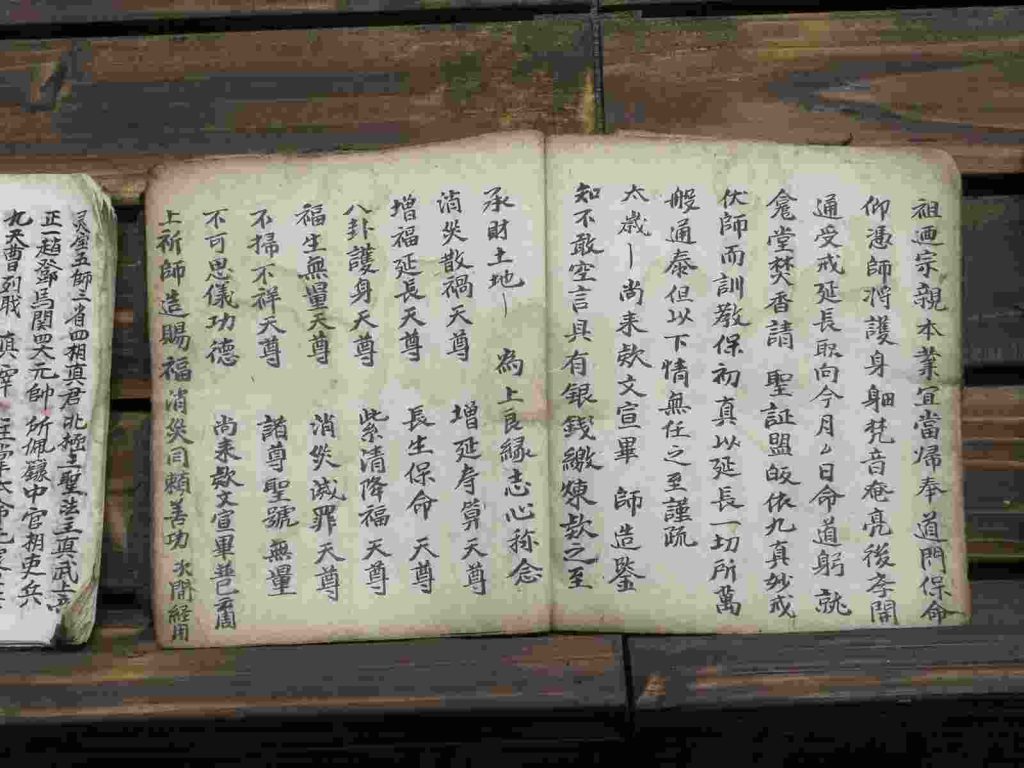 祖迪宗親本業宜當帰奉 道門保命
仰憑師將護身 梵音奄亮後李開
通受戒延長取向今月 日命道躬就
龛堂焚香請 聖証盟皈依九真妙戒
伏師而訓教保初真以延長一切所萬
般通泰但以下情無任之至謹疏
太歲 尚来欵文宣畢 師造鑒
知不敢空言具有銀錢繳煉欵之至
承財土地 為上良縁志心称念
消災散禍天尊 增延寿算天尊
增福延長天尊 長生保命 天尊
八卦護身天尊 紫清降福天尊
福生無量天尊 消災滅罪天尊
不掃不祥天尊 諸尊聖號 無量
不可思儀功德 尚来欵文宣畢 周
上祈師造賜福消災同賴善功 次開経用
灵宝五師三省四相真君北極上聖法主真武上帝
正一趙鄧馬関四大元帥 所佩籙中官相吏兵
九天曹列戝 真宰